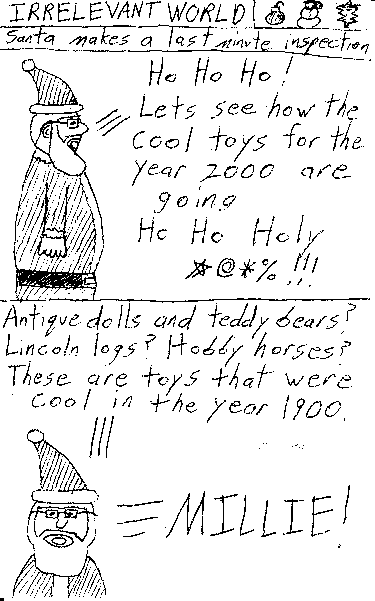 IRRELEVANT WORLD!
Santa makes a last minute inspection
Ho Ho Ho!
Lets see how the
cool toys for the
year 2000 are
going
Ho Ho Holy
*@*%!!!
Antique dolls and teddy bears?
Lincoln logs? Hobby horses?
These are toys that were
cool in the year 1900.
MILLIE!